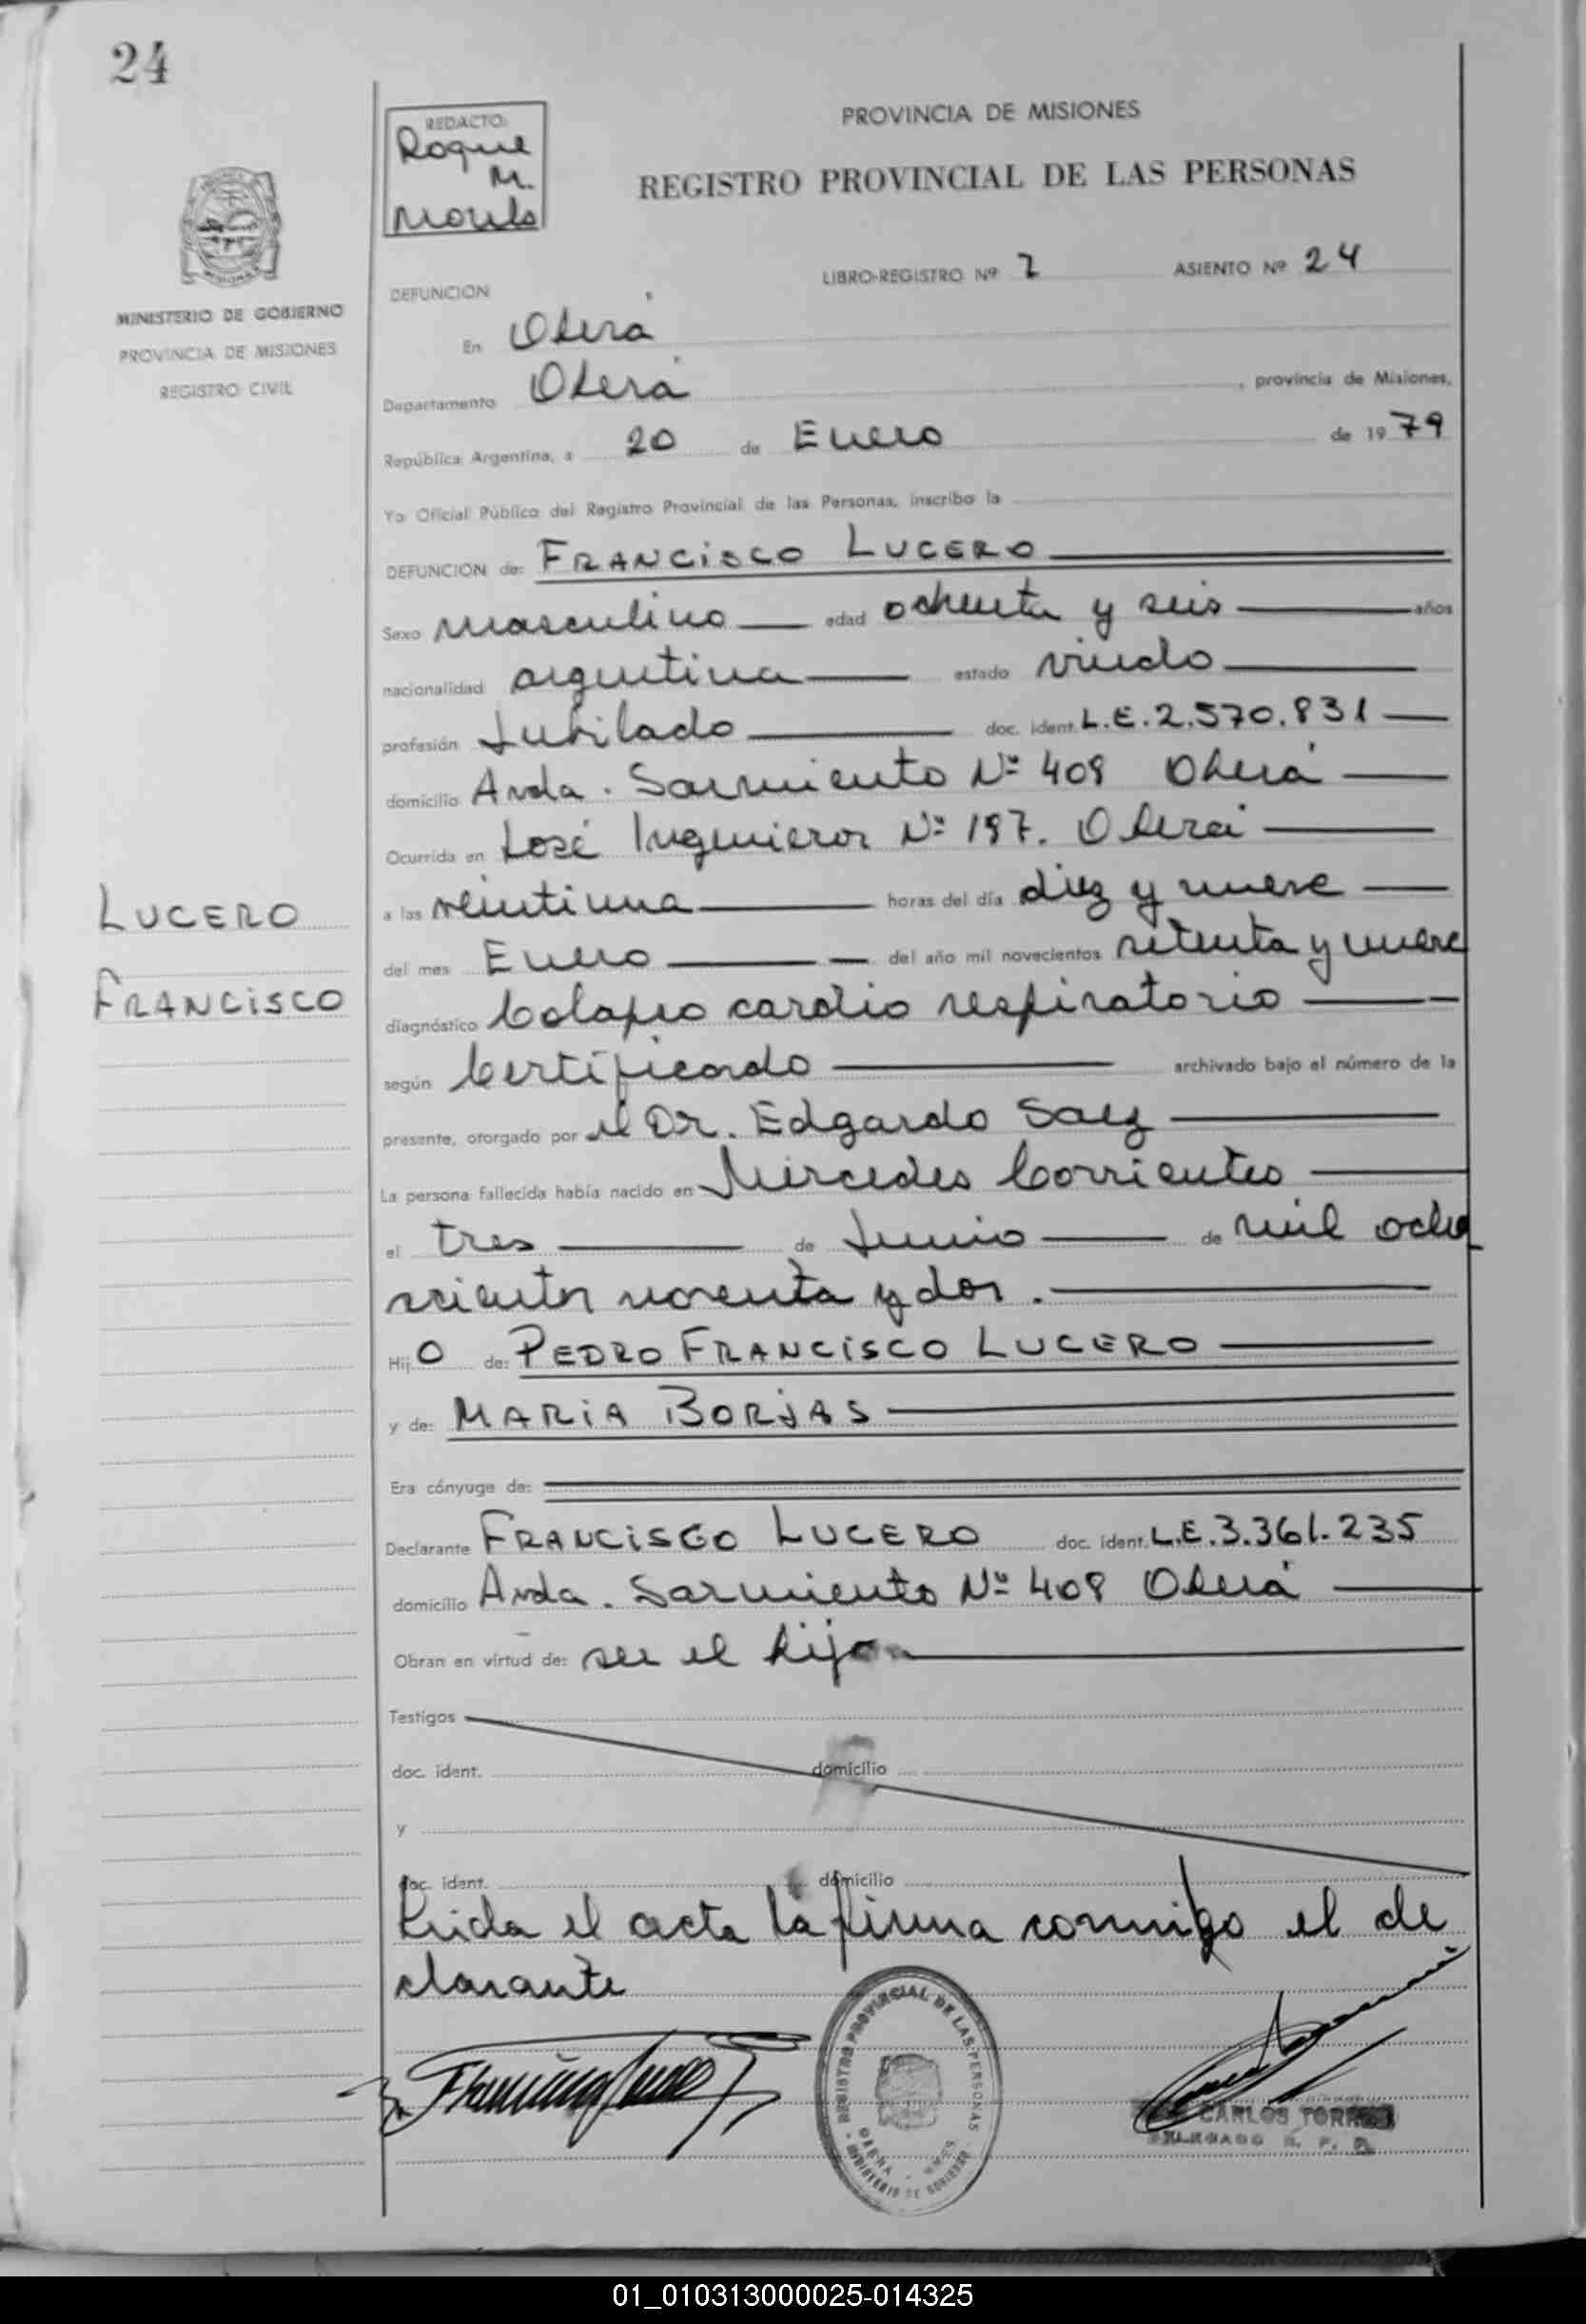 24
REDACTO:
Roque
M.
PROVINCIA DE MISIONES
REGISTRO PROVINCIAL DE LAS PERSONAS
MINISTERIO DE GOBIERNO
PROVINCIA DE MISIONES
REGISTRO CIVIL
LIBRO-REGISTRO Nº ASIENTO Nº 24
DEFUNCION
En Oberá
Departamento Oberá, provincia de Misiones,
República Argentina, a 20 de Enero de 1979
Yo Oficial Público del Registro Provincial de las Personas, inscribo la
DEFUNCION de: FRANCISCO LUCERO
Sexo masculino edad ochenta y seis años
nacionalidad argentina estado viudo
profesión Jubilado doc. ident. L.E.2.570.831
domicilio Avda. Sarmiento Nº 409 Oberá
Ocurrida en José Ingenieros Nº 197. Oberá
LUCERO
FRANCISCO
a las veintiuna horas del día diez y nueve
del mes Enero del año mil novecientos setenta y nueve
diagnóstico Colapso cardio respiratorio
según Certificado archivado bajo el número de la
presente, otorgado por el Dr. Edgardo Saez
La persona fallecida había nacido en Mercedes Corrientes
el tres de Junio de mil ocho
scientos noventa y dos.
Hijo de: PEDRO FRANCISCO LUCERO
y de: MARIA BORJAS
Era cónyuge de:
Declarante FRANCISCO LUCERO doc. ident. L.E.3.361.235
domicilio Avda. Sarmiento Nº 409 Oberá
Obran en virtud de: ser el hijo
Testigos
doc. ident. domicilio
y
doc. ident. domicilio
Leida el acta la firma conmigo el de
clarante
REGISTRO PROVINCIAL DE LAS PERSONAS
MINISTERIO DE GOBIERNO
CARLOS TORRES
DELEGADO R. P. P.
01_010313000025-014325